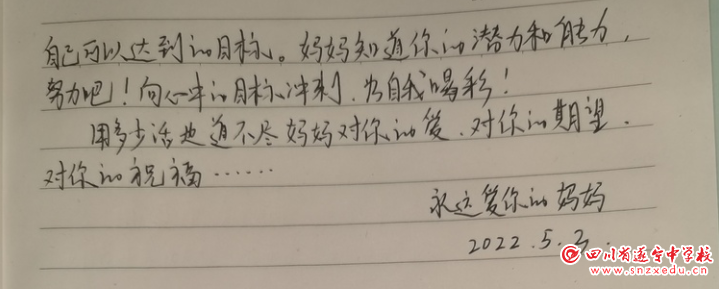 自己可以达到的目标。妈妈知道你的潜力和能力，
努力吧！向心中的目标冲刺，为自我喝彩！
用多少话也道不尽妈妈对你的爱、对你的期望、
对你的祝福……
永远爱你的妈妈
2022.5.3.
四川省遂宁中学校
www.snzxedu.cn